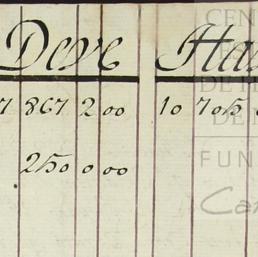 Deve Ha
7 867 2 00 10 705
250 0 00
CEN
DE H
DE M
FUN
Car